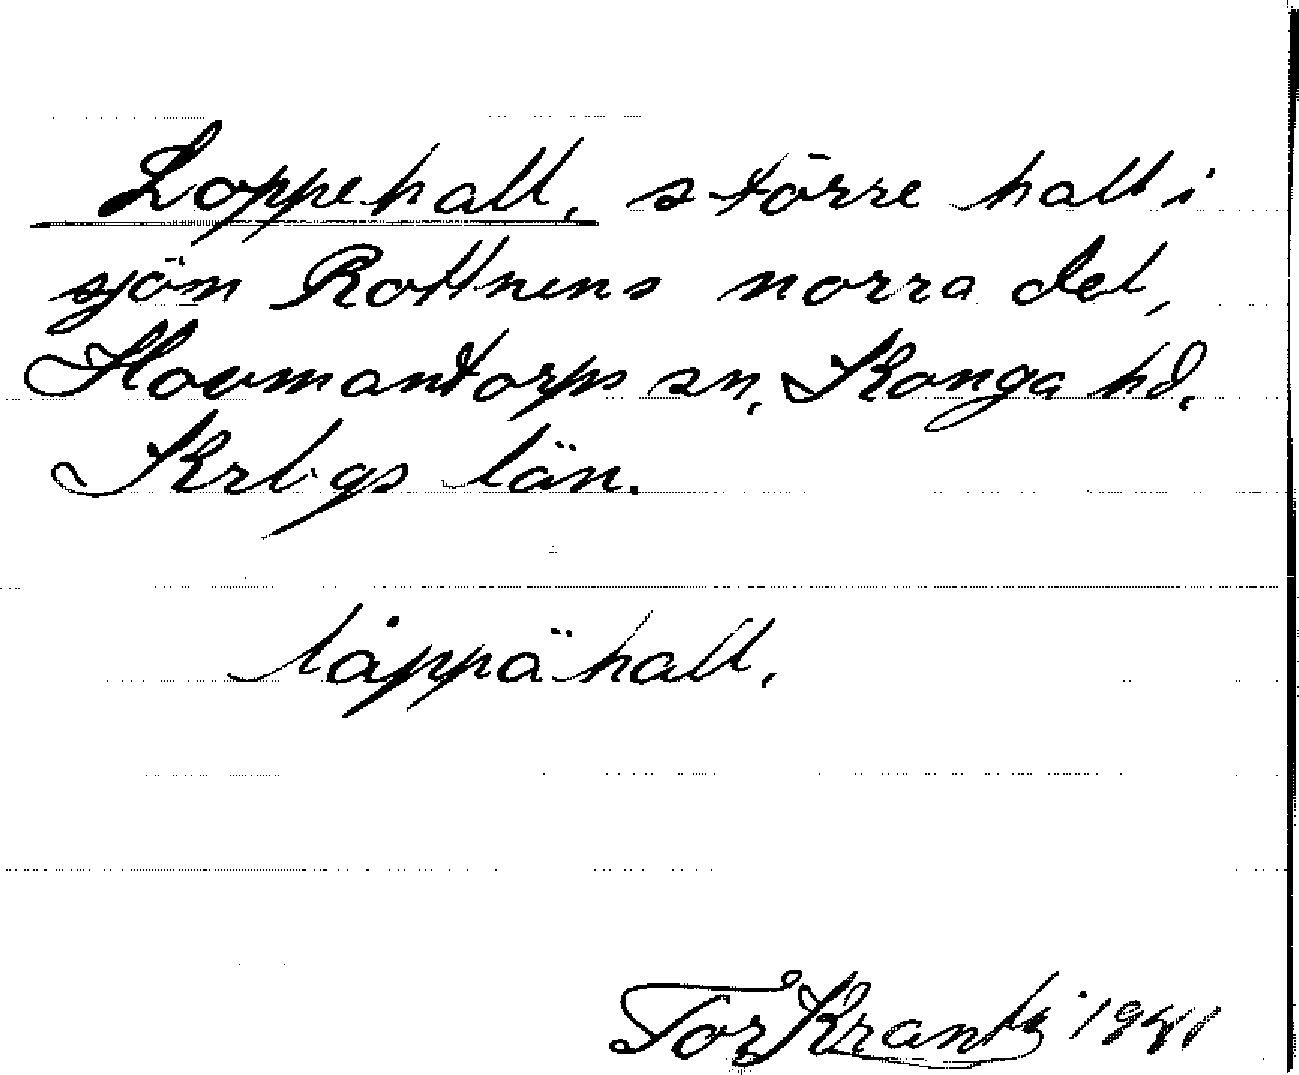 Loppehall, större hall i
sjön Rottnens norra del,
Hovmantorps sn, Konga hd,
Krbgs län.
låppähall,
Tor Krantz 1941